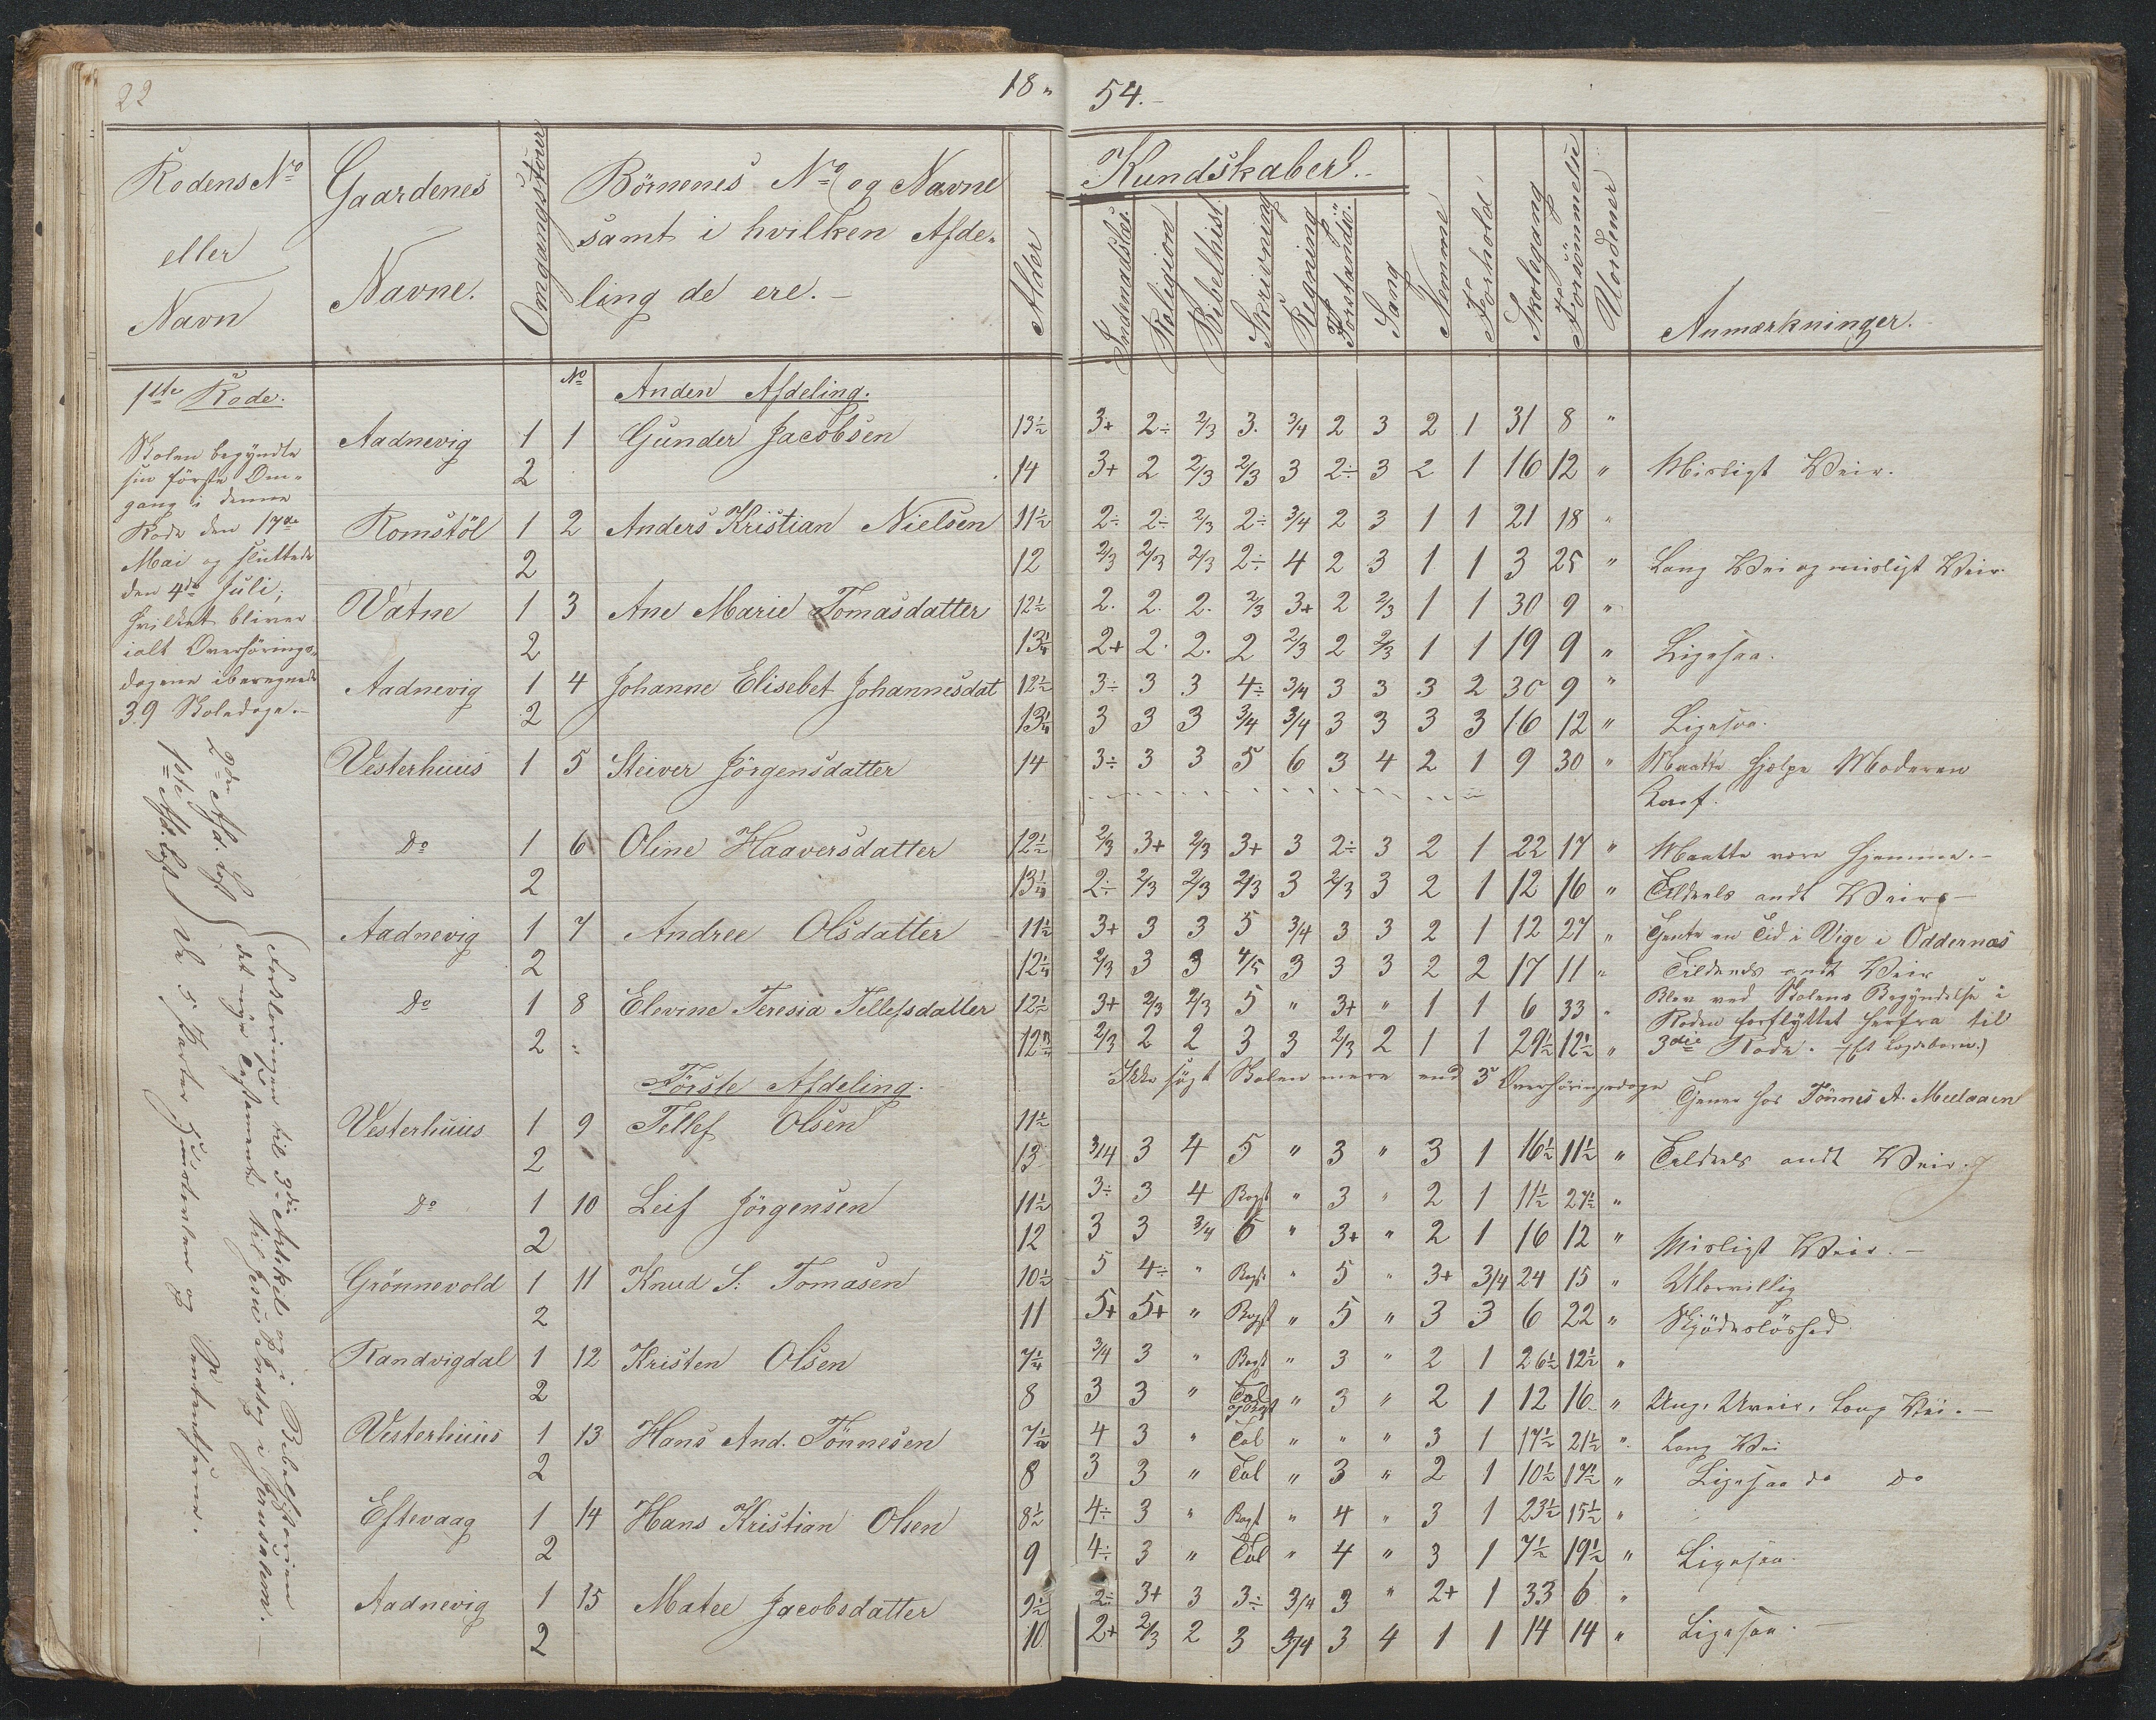 22
18 " 54.-
Rodens No eller Navn
Gaardenes Navne.
Omgangstouer
Börnenes No og Navne samt i hvilken Afde- ling de ere.-
Alder
Kundskaber.-
Indenadslæs.
Religion
Bibelhist.
Skrivning
Regning
Forstandsö.
Sang
Nemme
Forhold
Skolegang
Forsömmelse
Uordener
Anmærkninger.
1ste Rode.
Skolen begyndte
sin förste Om-
gang i denne
Rode den 17de
Mai og sluttede
den 4de Juli;
hvilket bliver
ialt Overhörings-
dagene iberegnede
39 Skoledage.-
No Anden Afdeling.
Aadnevig 1 1 Gunder Jacobsen 13½ 3+ 2÷ 2/3 3. 3/4 2 3 2 1 31 8 "
2 14 3+ 2 2/3 2/3 3 2÷ 3 2 1 16 12 " Misligt Veir.
Romstöl 1 2 Anders Kristian Nielsen 11½ 2÷ 2÷ 2/3 2÷ 3/4 2 3 1 1 21 18 "
2 12 2/3 2/3 2/3 2÷ 4 2 3 1 1 3 25 " Lang Vei og misligt Veir.
Vatne 1 3 Ane Marie Tomasdatter 12½ 2. 2. 2. 2/3 3+ 2 2/3 1 1 30 9 "
2 13¼ 2+ 2. 2. 2 2/3 2 2/3 1 1 19 9 " Ligesaa.
Aadnevig 1 4 Johanne Elisebet Johannesdat 12½ 3÷ 3 3 4÷ 3/4 3 3 3 2 30 9 "
2 13¼ 3 3 3 3/4 3/4 3 3 3 3 16 12 " Ligesaa.
Vesterhuus 1 5 Steiver Jörgensdatter 14 3÷ 3 3 5 6 3 4 2 1 9 30 " Maatte hjelpe Moderen
Do 1 6 Oline Haaversdatter 12½ 2/3 3+ 2/3 3+ 3 2÷ 3 2 1 22 17 " Maatte være hjemme.-
2 13¼ 2÷ 2/3 2/3 2/3 3 2/3 3 2 1 12 16 " Tildeels ondt Veir.-
Aadnevig 1 7 Andree Olsdatter 11½ 3+ 3 3 5 3/4 3 3 2 1 12 27 " Tjente en Tid i Vige i Oddernæs
2 12¼ 2/3 3 3 4/5 3 3 3 2 2 17 11 " Tildeels ondt Veir
Do 1 8 Elevine Teresia Tellefsdatter 12½ 3+ 2/3 2/3 5 " 3+ " 1 1 6 33 " Blev ved Skolens Begyndelse i
Roden forflyttet herfra til
2 " 12¾ 2/3 2 2 3 3 2/3 2 1 1 29½ 12½ " 3die Rode. (Et Lægdebarn.)
Förste Afdeling.
Ikke sögt Skolen mere end 3 Overhöringsdage
Tjener hos Tönnes A. Meelaaen
Vesterhuus 1 9 Tellef Olsen 11½
2 13 3/4 3 4 5 " 3 " 3 1 16½ 11½ " Tildeels ondt Veir.
Do 1 10 Leif Jörgensen 11½ 3÷ 3 4 Bogst " 3 " 2 1 11½ 27½ "
2 12 3 3 3/4 6 " 3+ " 2 1 16 12 " Misligt Veir.-
Grönnevold 1 11 Knud S. Tomasen 10½ 5 4÷ " Bogst " 5 " 3+ 3/4 24 15 " Uvorvillig
2 11 5+ 5+ " Bogst " 5 " 3 3 6 22 " Skjödeslöshed
Randvigdal 1 12 Kristen Olsen 7¼ 3/4 3 " Bogst " 3 " 2 1 26½ 12½ "
2 8 3 3 " Tal og Bogst " 3 " 2 1 12 16 " Ung, Uveir, Lang Vei.-
Vesterhuus 1 13 Hans And. Tönnesen 7½ 4 3 " Tal " " " 3 1 17½ 21½ " Lang Vei
2 8 3 3 " Tal " 3 " 2 1 10½ 17½ " Ligesaa do do
Eftevaag 1 14 Hans Kristian Olsen 8½ 4÷ 3 " Bogst " 4 " 3 1 23½ 15½ "
2 9 4÷ 3 " Tal " 4 " 3 1 7½ 19½ " Ligesaa.
Aadnevig 1 15 Matee Jacobsdatter 9½ 2÷ 3+ 3 3÷ 3/4 3 " 2+ 1 33 6 "
2 10 2+ 2/3 2 3 3/4 3 4 1 1 14 14 " Ligesaa.-
2den Afd. læst
1ste Afd. læst
Forklaringen til 3die Artikel og i Bibelhistorien
det nye Testamente til Jesu Indtog i Jerusalem.-